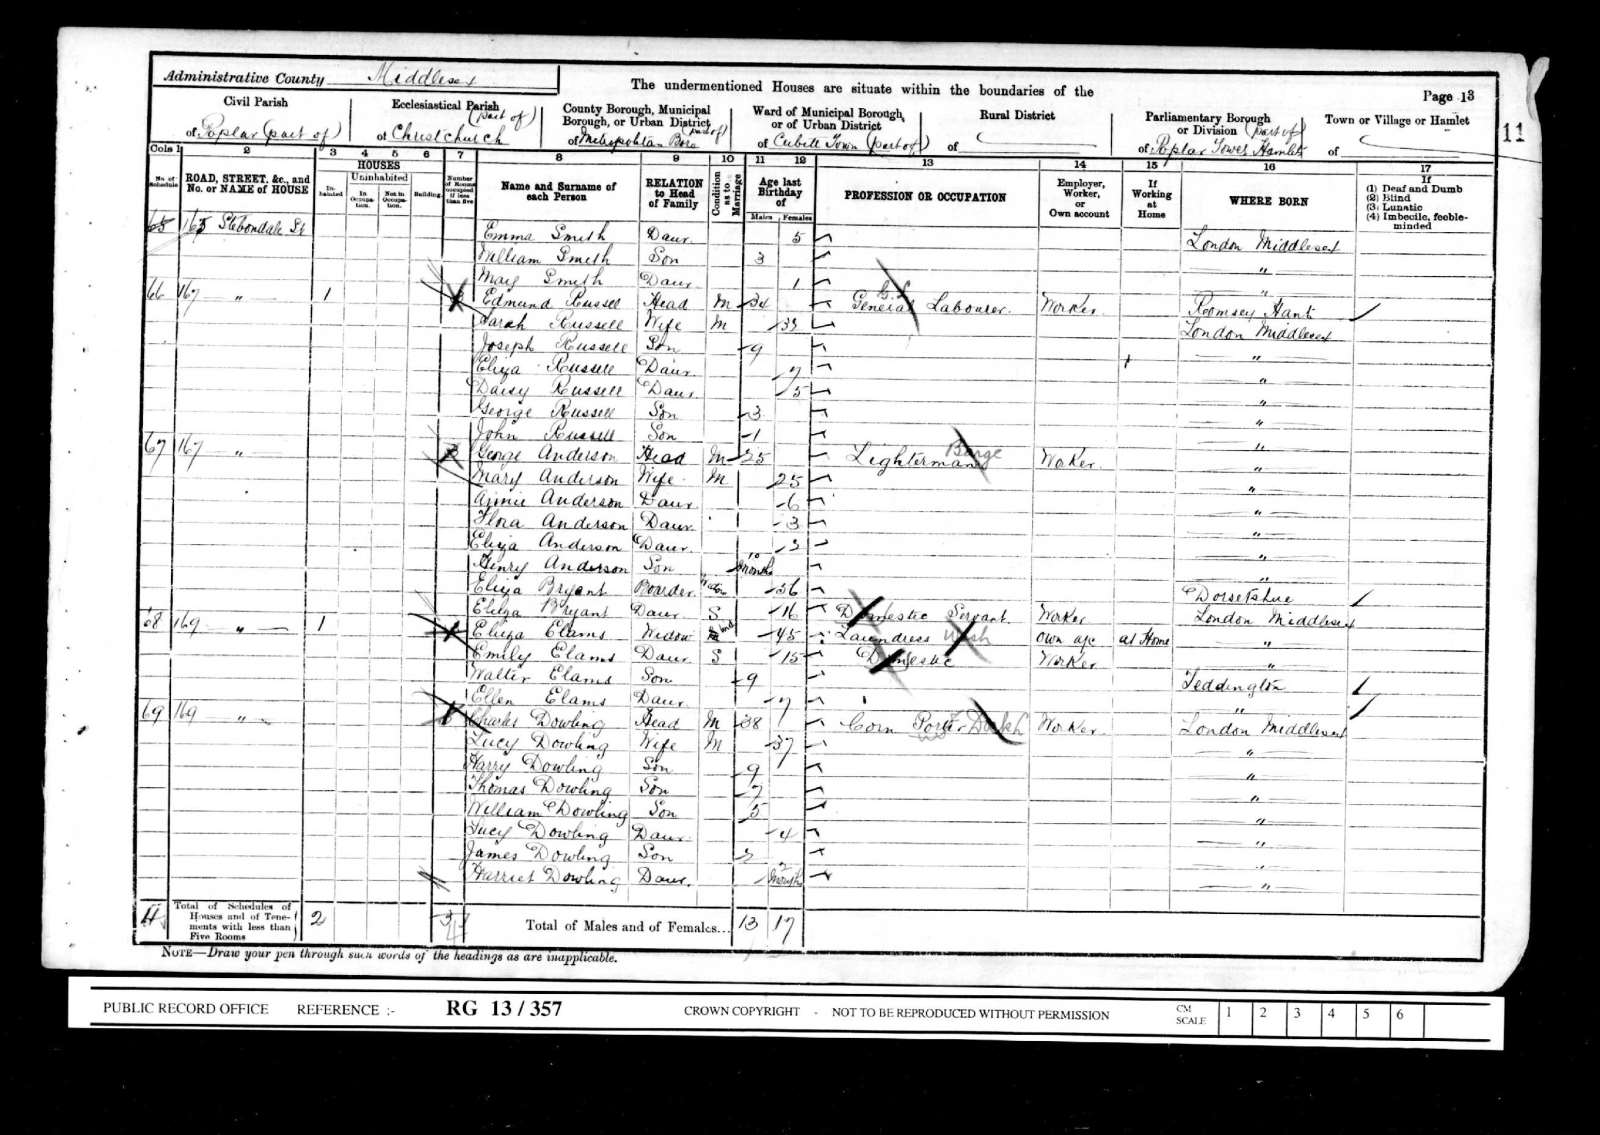 Administrative County Middlesex
The undermentioned Houses are situate within the boundaries of the
Page 13
Civil Parish
of Poplar (part of)
Ecclesiastical Parish (part of)
of Christchurch
County Borough, Municipal Borough, or Urban District (part of)
of Metropolitan Boro
Ward of Municipal Borough, or of Urban District
of Cubitt Town (part of)
Rural District
of
Parliamentary Borough or Division (part of)
of Poplar Tower Hamlets
Town or Village or Hamlet
of
11
Cols 1 2 3 4 5 6 7 8 9 10 11 12 13 14 15 16 17
No. of Schedule
ROAD, STREET, &c., and No. or NAME of HOUSE
HOUSES
Inhabited
Uninhabited
In Occupation.
Not in Occupation.
Building.
Number of Rooms occupied if less than five
Name and Surname of each Person
RELATION to Head of Family
Condition as to Marriage
Age last Birthday of
Males Females
PROFESSION OR OCCUPATION
Employer, Worker, or Own account
If Working at Home
WHERE BORN
If
(1) Deaf and Dumb
(2) Blind
(3) Lunatic
(4) Imbecile, feeble-minded
65 165 Stebondale St Emma Smith Daur 5 London Middlesex
William Smith Son 3 "
Mary Smith Daur 1 "
66 167 " 1 Edmund Russell Head M 34 General Labourer G.L Worker Romsey Hants
Sarah Russell Wife M 33 London Middlesex
Joseph Russell Son 9 "
Eliza Russell Daur 7 "
Daisy Russell Daur 5 "
George Russell Son 3 "
John Russell Son 1 "
67 167 " George Anderson Head M 25 Lighterman Barge Worker "
Mary Anderson Wife M 25 "
Annie Anderson Daur 6 "
Flora Anderson Daur 3 "
Eliza Anderson Daur "
Henry Anderson Son 10 months "
Eliza Bryant Boarder Widow 56 Dorsetshire
Eliza Bryant Daur S 16 Domestic Servant Worker London Middlesex
68 169 " 1 Eliza Elams Widow 45 Laundress Wash own a/c at Home "
Emily Elams Daur S 15 Domestic Worker "
Walter Elams Son 9 Teddington
Ellen Elams Daur 7 "
69 169 " Charles Dowling Head M 38 Corn Porter Worker London Middlesex
Lucy Dowling Wife M 37 "
Harry Dowling Son 9 "
Thomas Dowling Son 7 "
William Dowling Son 5 "
Lucy Dowling Daur 4 "
James Dowling Son "
Harriet Dowling Daur 2 months "
4 Total of Schedules of Houses and of Tenements with less than Five Rooms 2 3 Total of Males and of Females... 13 17
NOTE—Draw your pen through such words of the headings as are inapplicable.
PUBLIC RECORD OFFICE REFERENCE :- RG 13 / 357 CROWN COPYRIGHT - NOT TO BE REPRODUCED WITHOUT PERMISSION CM SCALE 1 2 3 4 5 6